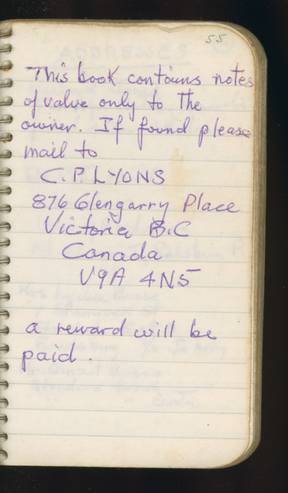 55
This book contains notes
of value only to the
owner. If found please
mail to
C.P. LYONS
876 Glengarry Place
Victoria B.C
Canada
V9A 4N5
a reward will be
paid.